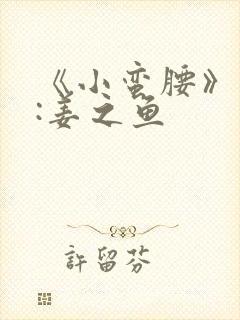 《小蛮腰》
:姜之鱼
許留芬